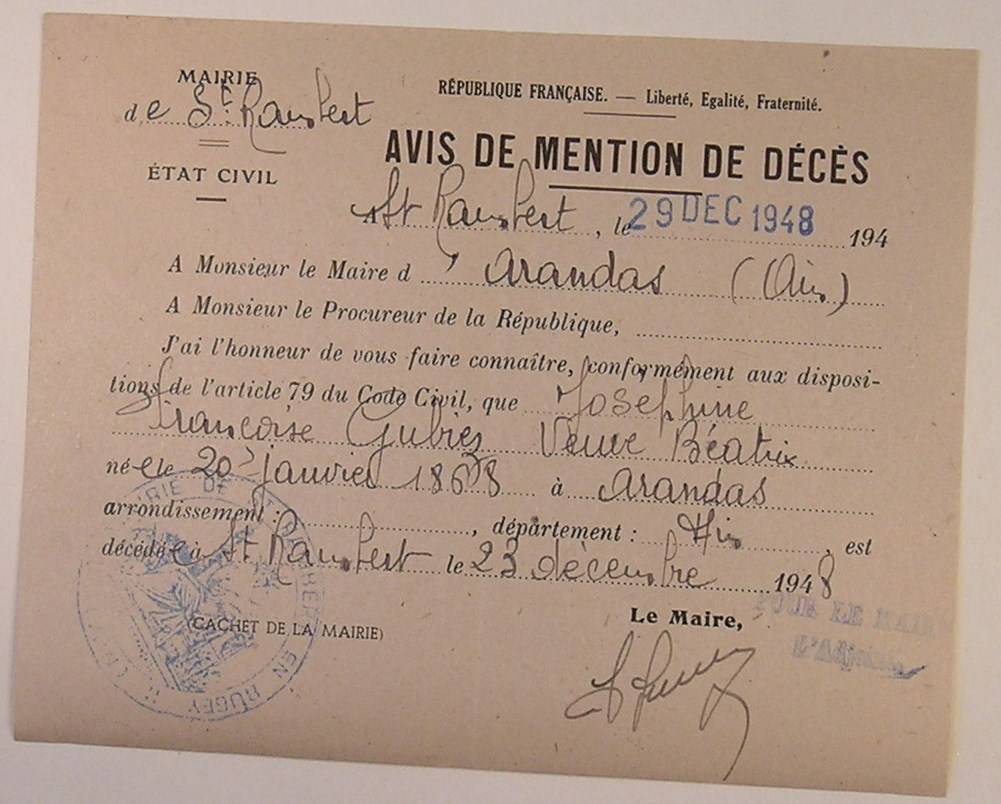 MAIRIE
de St Rambert
ÉTAT CIVIL
RÉPUBLIQUE FRANÇAISE. — Liberté, Egalité, Fraternité.
AVIS DE MENTION DE DÉCÈS
St Rambert, le 29 DEC 1948 194
A Monsieur le Maire d' Arandas (Ain)
A Monsieur le Procureur de la République,
J'ai l'honneur de vous faire connaître, conformément aux disposi-
tions de l'article 79 du Code Civil, que Joséphine
Françoise Veuve Béatrix
née le 20 janvier 1868 à Arandas
arrondissement : , département : Ain , est
décédée à St Rambert le 23 décembre 1948
Le Maire,
POUR LE MAIRE
L'Adjoint
(CACHET DE LA MAIRIE)
MAIRIE DE EN BUGEY